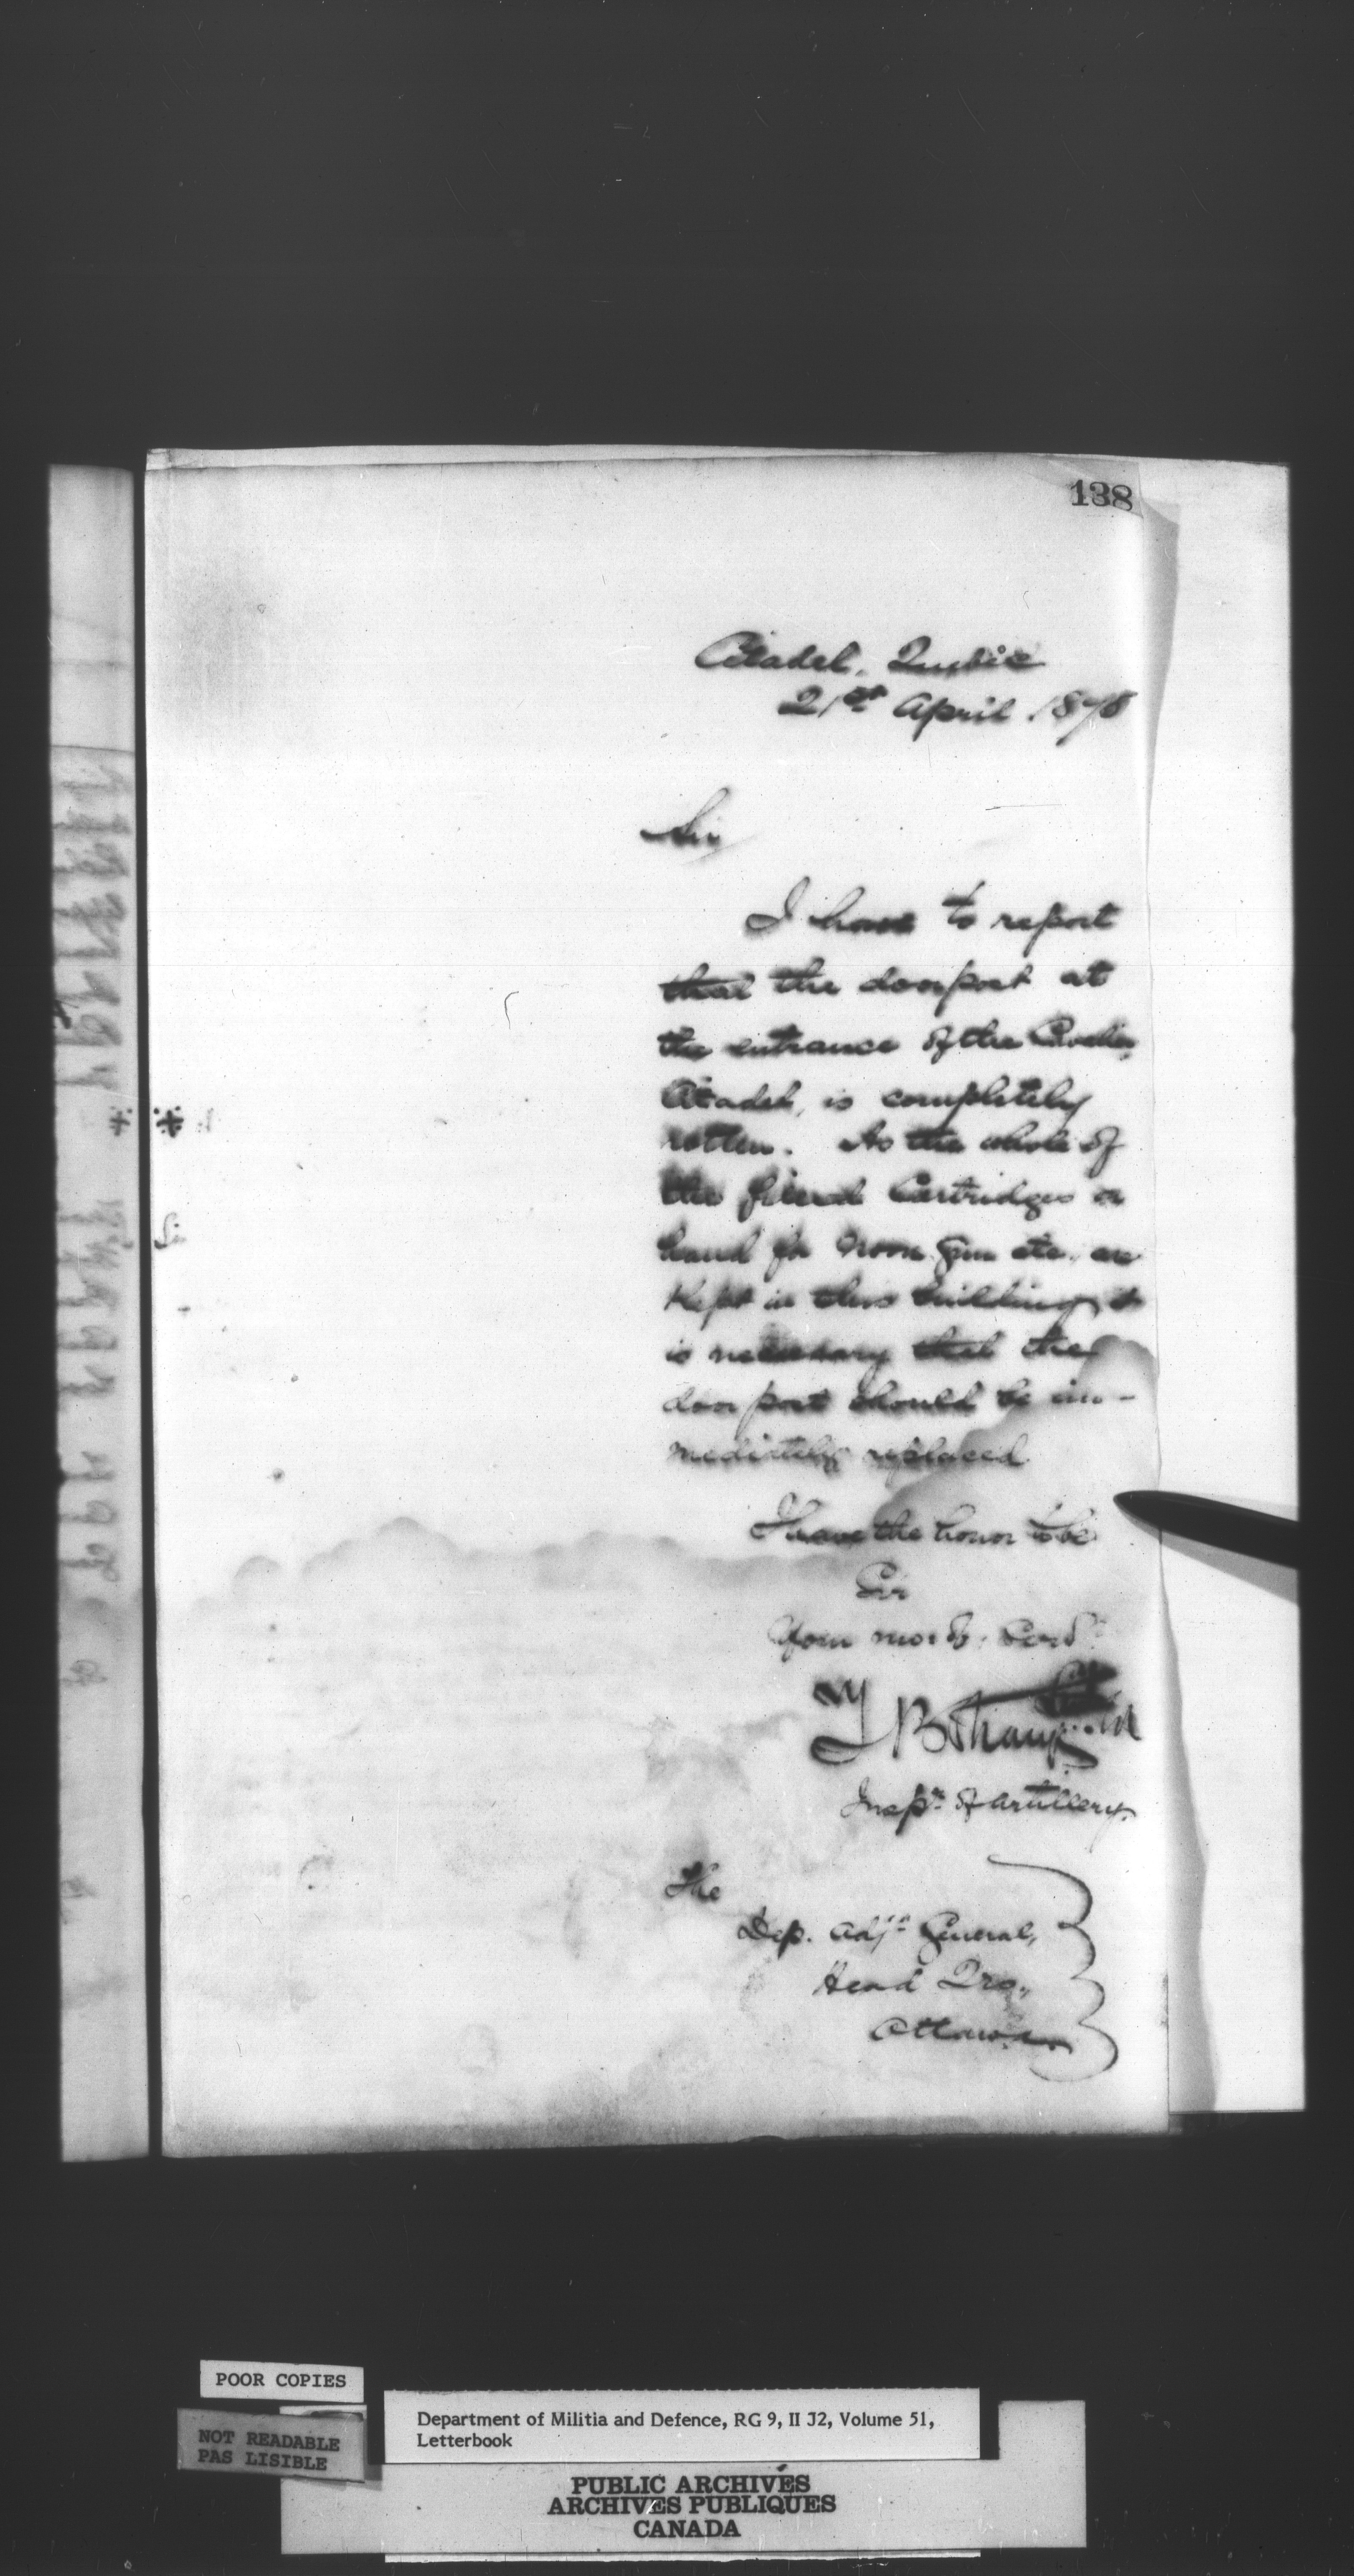 138
Citadel, Quebec
21st April 1878
Sir
I have to report
that the doorpost at
the entrance of the Cavalier,
Citadel, is completely
rotten. As the whole of
the filled Cartridges on
hand for Noon Gun etc. are
Kept in this building, it
is necessary that the
door post should be im-
mediately replaced
I have the honor to be
Sir
Your most ob. Serv
Insp.r of Artillery.
The
Dep. Adjt General,
Head Qrs.,
Ottawa
POOR COPIES
NOT READABLE
PAS LISIBLE
Department of Militia and Defence, RG 9, II J2, Volume 51,
Letterbook
PUBLIC ARCHIVES
ARCHIVES PUBLIQUES
CANADA